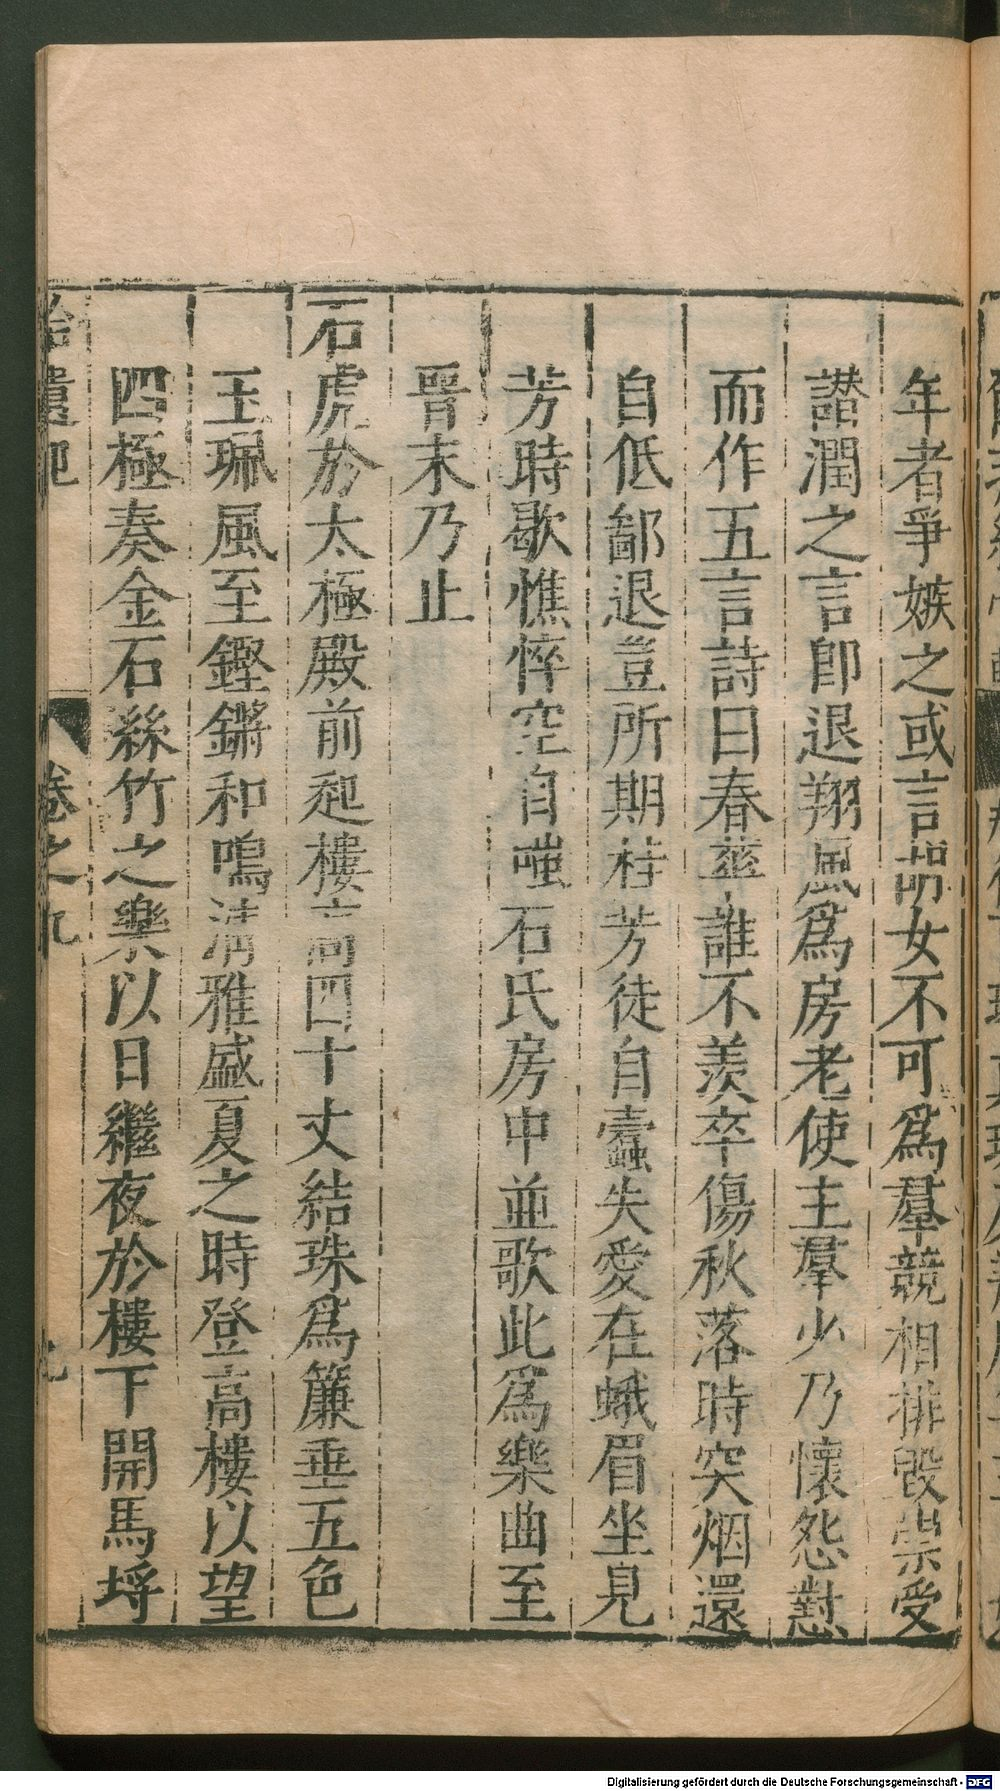 年者爭嫉之或言胡女不可爲羣競相排毀崇受
譖潤之言卽退翔風爲房老使主羣少乃懷怨懟
而作五言詩曰春華誰不羨卒傷秋落時突烟還
自低鄙退豈所期桂芳徒自蠹失愛在蛾眉坐見
芳時歇憔悴空自嗤石氏房中並歌此爲樂曲至
晉末乃止
石虎於太極殿前起樓高四十丈結珠爲簾垂五色
玉珮風至鏗鏘和鳴清雅盛夏之時登高樓以望
四極奏金石絲竹之樂以日繼夜於樓下開馬埒
拾遺記 卷之九 九
Digitalisierung gefördert durch die Deutsche Forschungsgemeinschaft - DFG